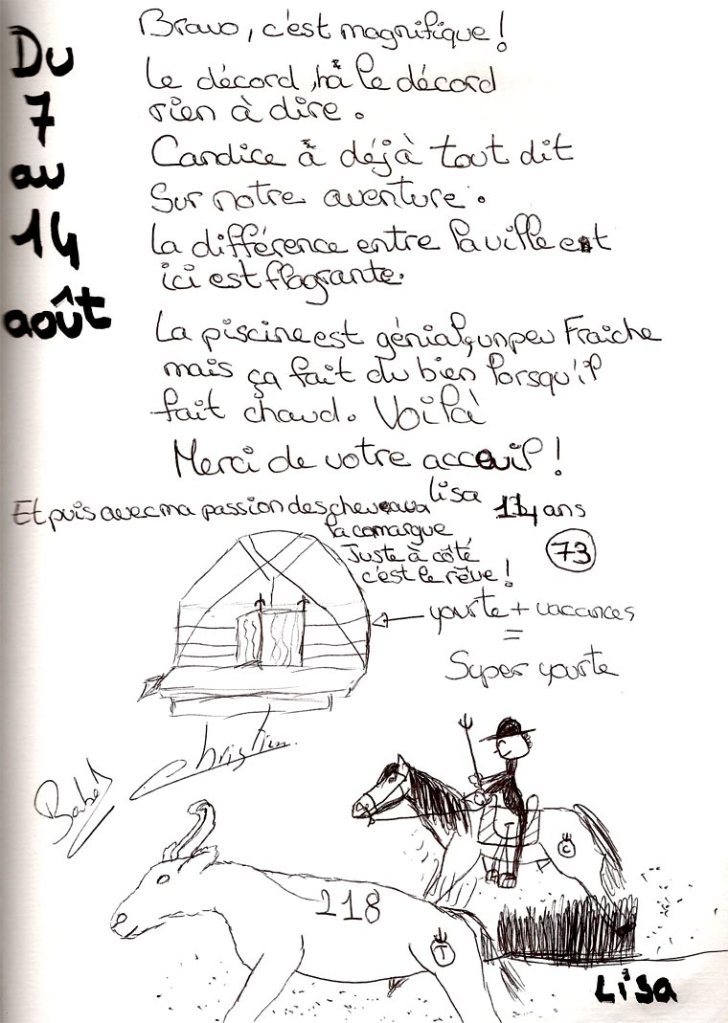 Du
7
au
14
août
Bravo, c'est magnifique !
Le décord, hâ le décord
rien à dire.
Candice à déjà tout dit
Sur notre aventure.
La différence entre la ville est
ici est flagrante.
La piscine est génial, un peu Fraiche
mais ça fait du bien lorsqu'il
fait chaud. Voilà
Merci de votre accueil !
Lisa 14 ans
Et puis avec ma passion des chevaux
la camargue
Juste à côté
c'est le rêve !
73
yourte + vacances
=
Super yourte
Christian
Babeth
C
218
T
Lisa